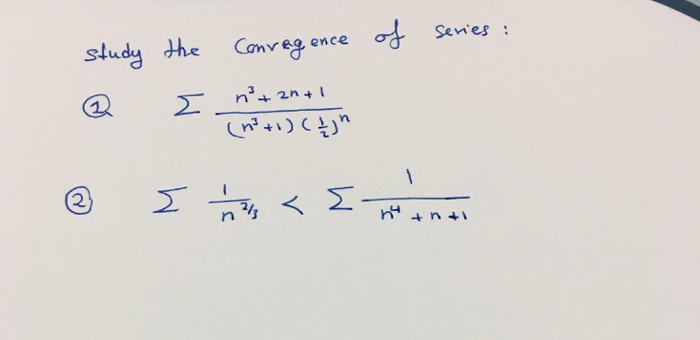 study the Convergence of series :
① Σ (n³ + 2n + 1) / ((n³ + 1) (1/2)ⁿ)
② Σ 1 / n^(2/3) < Σ 1 / (n⁴ + n + 1)